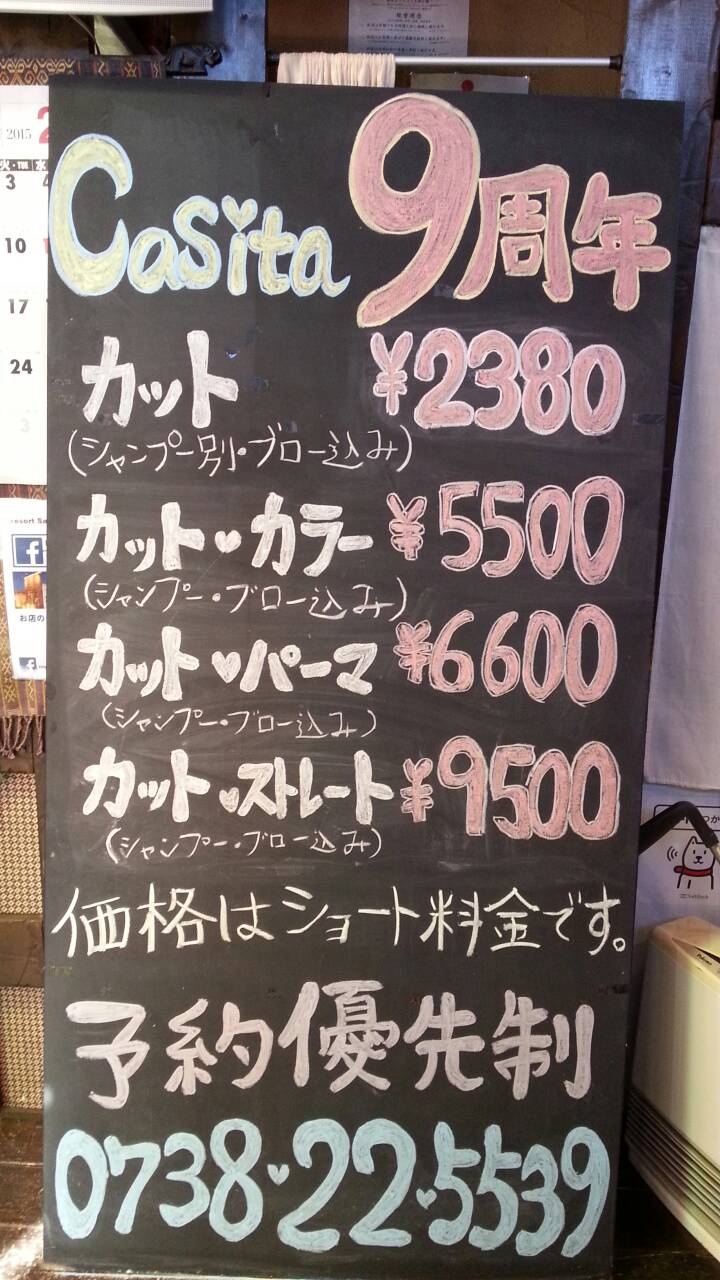 Casita 9周年
カット ¥2380
(シャンプー別・ブロー込み)
カット♥カラー ¥5500
(シャンプー・ブロー込み)
カット♥パーマ ¥6600
(シャンプー・ブロー込み)
カット♥ストレート ¥9500
(シャンプー・ブロー込み)
価格はショート料金です。
予約優先制
0738♥22♥5539
2015 2
火・TUE 水
3 4
10
17
24
3
esort Sa
お店の
SoftBank